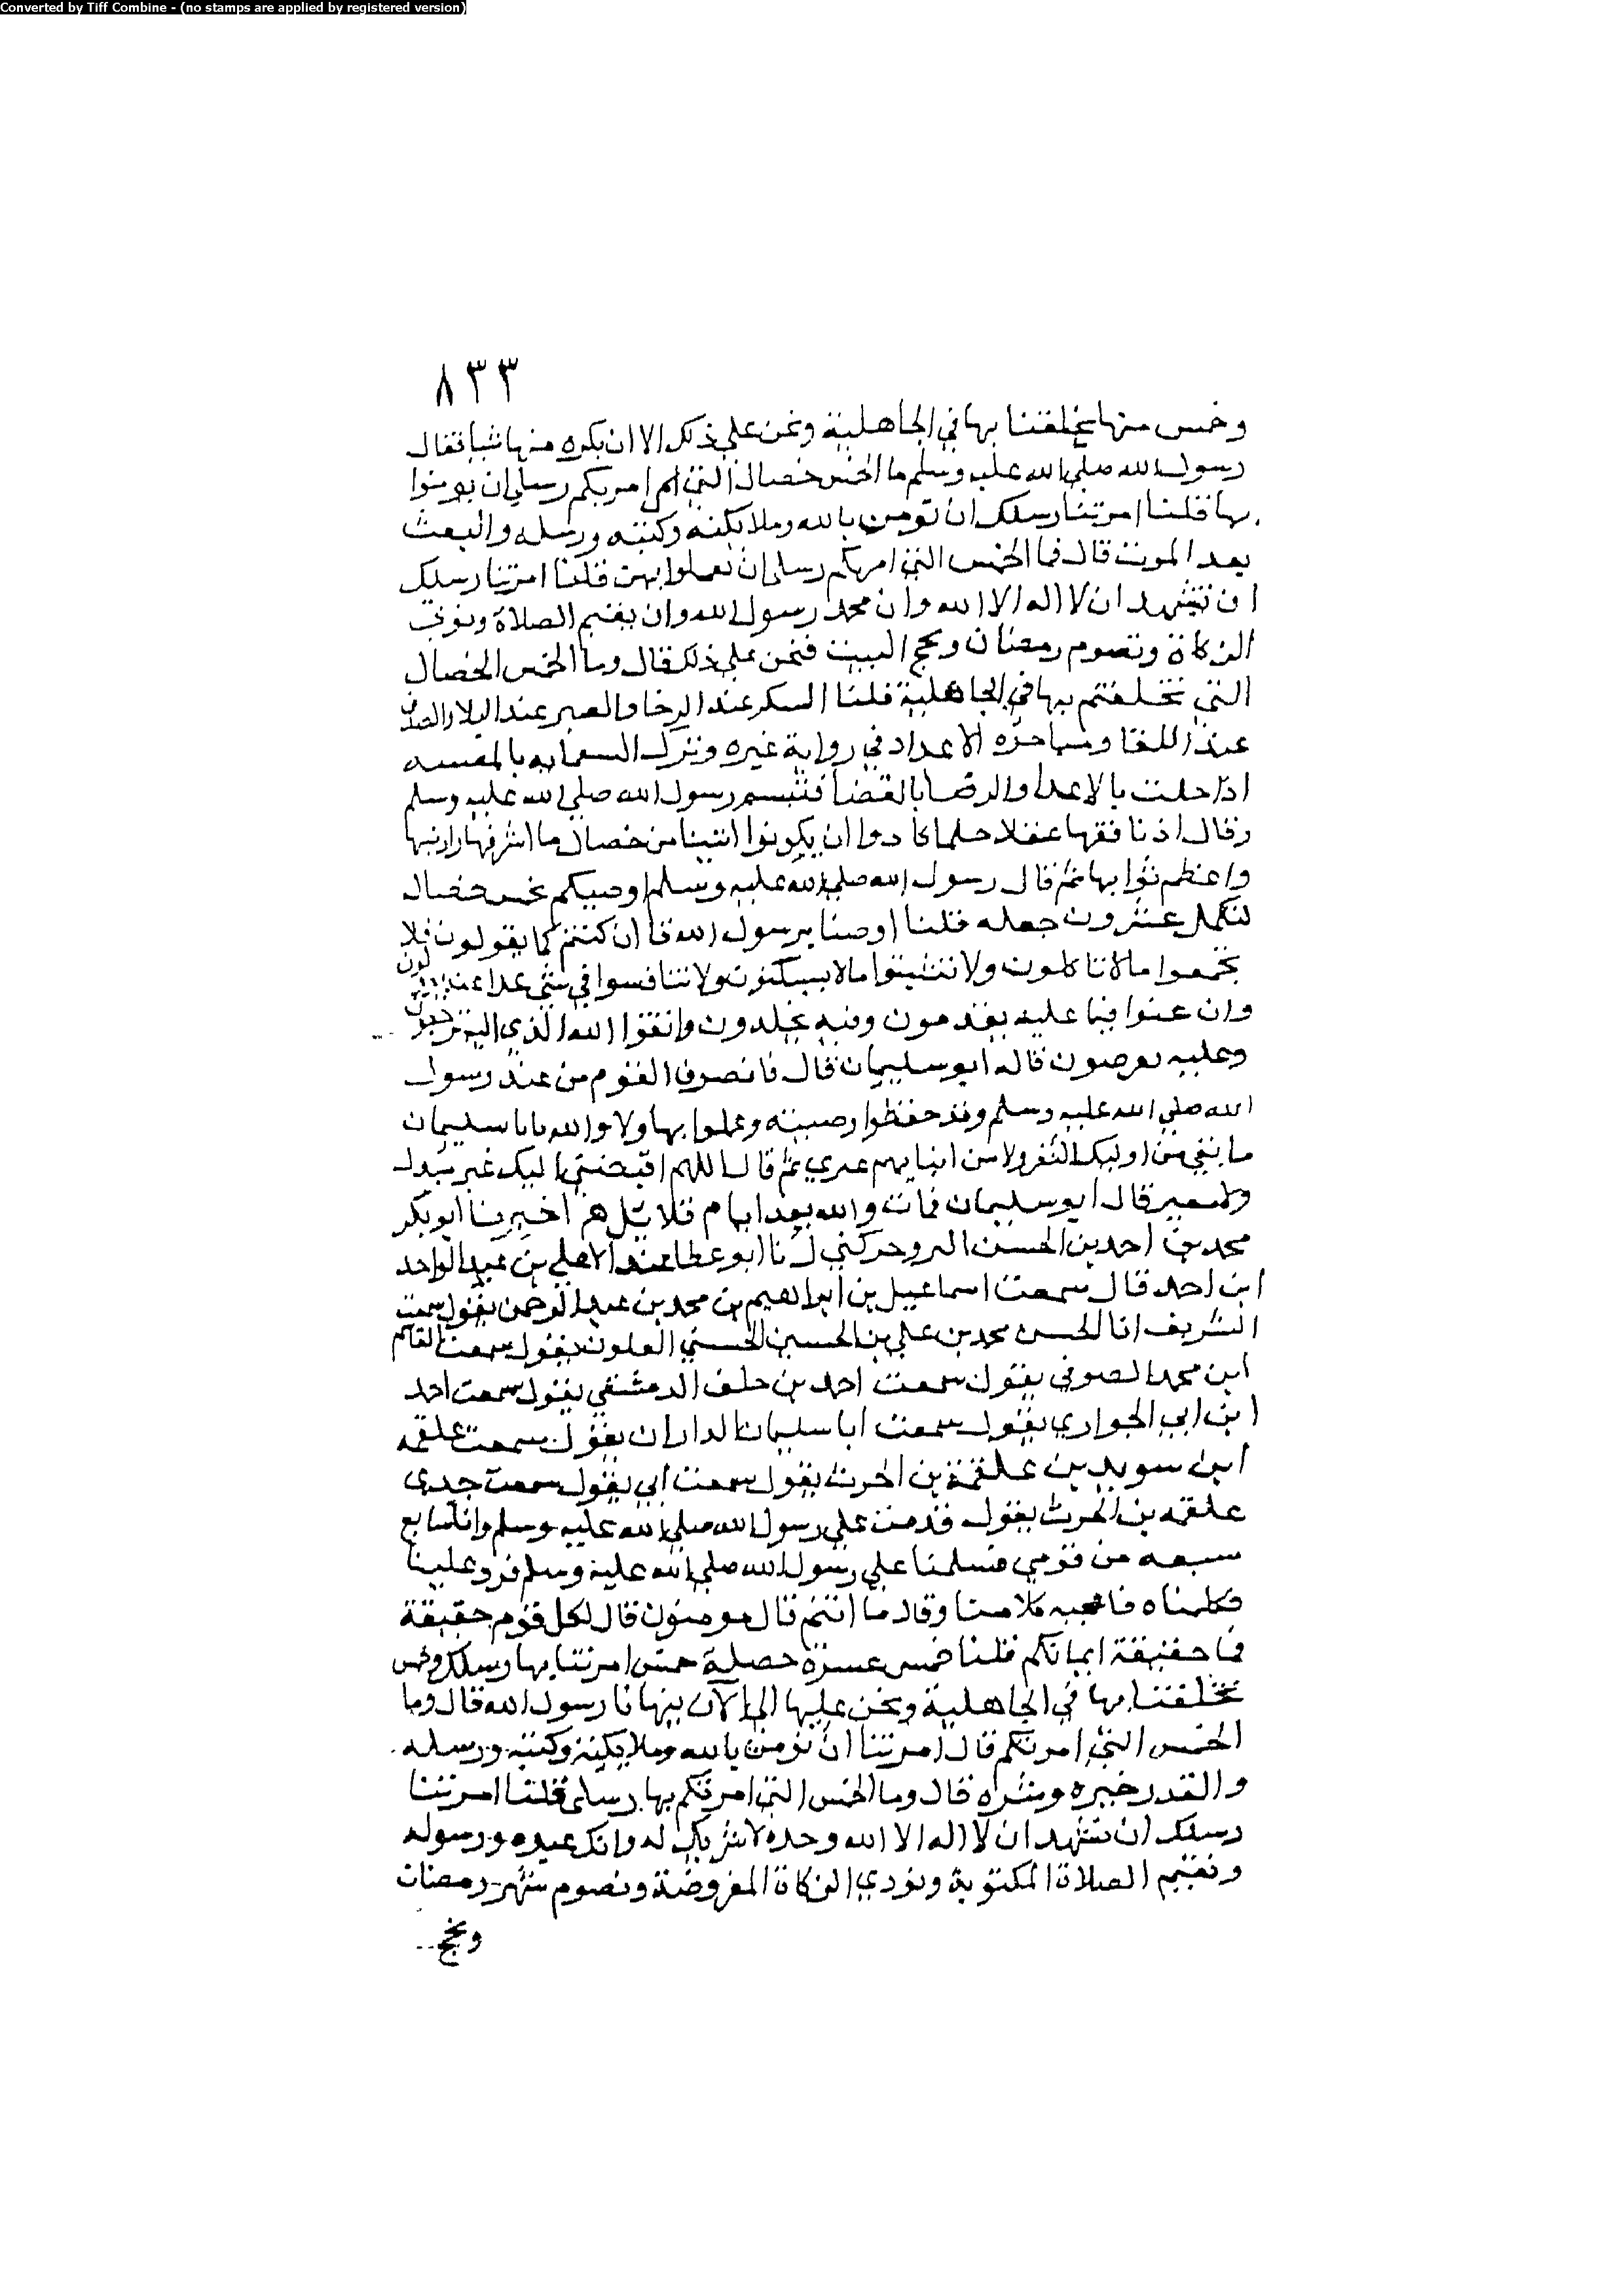 Converted by Tiff Combine - (no stamps are applied by registered version)
٨٣٣
وخمس منها تخلقنا بها في الجاهلية ونحن علي ذلك الا ان يكره منها شيا فقال
رسول الله صلي الله عليه وسلم ما الخمس خصال التي امركم رسلي ان يومنوا
بها قلنا امرتنا رسلك ان نومن بالله وملايكته وكتبه ورسله والبعث
بعد الموت قال فما الخمس التي امرتكم رسلي ان تعملوا بهن قلنا امرتنا رسلك
ان نشهد ان لا اله الا الله وان محمد رسول الله وان يقيم الصلاة ونوتي
الزكاة ونصوم رمضان ونحج البيت فنحن علي ذلك قال وما الخمس الخصال
التي تخلقتم بها في الجاهلية قلنا السكر عند الرخا والصبر عند البلا والصدق
عند اللقا ومباحزه الاعداد في رواية غيره وترك السمايه بالمصيبه
اذا حلت بالاعدا والرضا بالقضا فتبسم رسول الله صلي الله عليه وسلم
وقال اذنا فقها عقلا حلما كادوا ان يكونوا انبيا من خصال ما اشرفها وازينها
واعظم ثوابها ثم قال رسول الله صلي الله عليه وسلم اوصيكم بخمس خصال
لتكمل عشرون جعله قلنا اوصنا يرسول الله قا ان كنتم كما يقولون فلا
تجمعوا مالا تاكلون ولا تبنوا مالا تسكنون ولا تنافسوا في شي غدا عنه تزولون
وان عنوا فيما عليه يقدمون وفيه يخلدون واتقوا الله الذي اليه ترجعون
وعليه تعرضون قاله ابو سليمان قال فانصرف القوم من عند رسول
الله صلي الله عليه وسلم وقد حفظوا وصيته وعملوا بها ولا والله يابا سليمان
ما بقي من اوليك النفر ولا من ابنايهم غيري ثم قال اللهم اقبضني اليك غير مبدل
ولا مغير قال ابو سليمان فمات والله بعد ايام قلايل هم اخبرنا ابو بكر
محمد بن احمد بن الحسن البروجركني انا ابو عطا عبد الاعلي بن عبد الواحد
ابن احمد قال سمعت اسماعيل بن ابراهيم بن محمد بن عبد الرحمن يقول سمعت
الشريف ابا الحسن محمد بن علي بن الحسين الحسني العلون يقول سمعت القاسم
ابن محمد الصوفي يقول سمعت احمد بن خلف الدمشقي يقول سمعت احمد
ابن ابي الحواري يقول سمعت ابا سليمان الداراني يقول سمعت علقمه
ابن سويد بن علقمة بن الحرث يقول سمعت ابي يقول سمعت جدي
علقمه بن الحرث يقول قدمت علي رسول الله صلي الله عليه وسلم وانا سابع
سبعه من قومي فسلمنا علي رسول الله صلي الله عليه وسلم فرد علينا
فكلمناه فاعجبه كلامنا وقال ما انتم قال مومنون قال لكل قوم حقيقة
فما حقيقة ايمانكم قلنا خمس عسرة خصلة خمس امرتنا بها وسلك وخمس
تخلقنا بها في الجاهلية ونحن عليها الي الان ينهانا رسول الله قال وما
الخمس التي امرتكم قال امرتنا ان نومن بالله وملايكته وكتبه ورسله
والقدر خيره وشره قال وما الخمس التي امرتكم بها رسلي قلنا امرتنا
رسلك ان نشهد ان لا اله الا الله وحده لا شريك له وانك عبده ورسوله
ونقيم الصلاة المكتوبة ونودي الزكاة المفروضة ونصوم شهر رمضان
ونحج